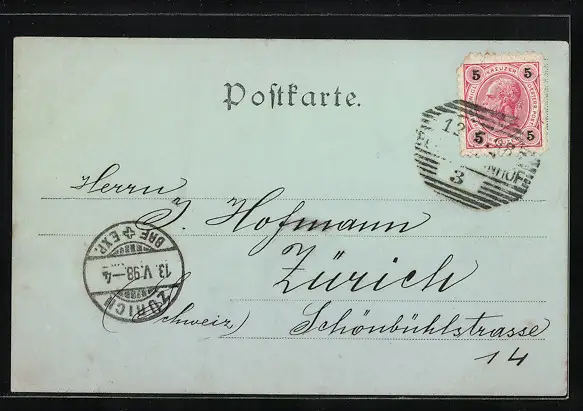 Postkarte.
5 KREUZER 5
5 5
12 98
3
Herrn J. Hofmann
Zürich
(Schweiz) Schönbühlstrasse
14
BRF EXP.
13. V. 98 – 4
ZÜRICH